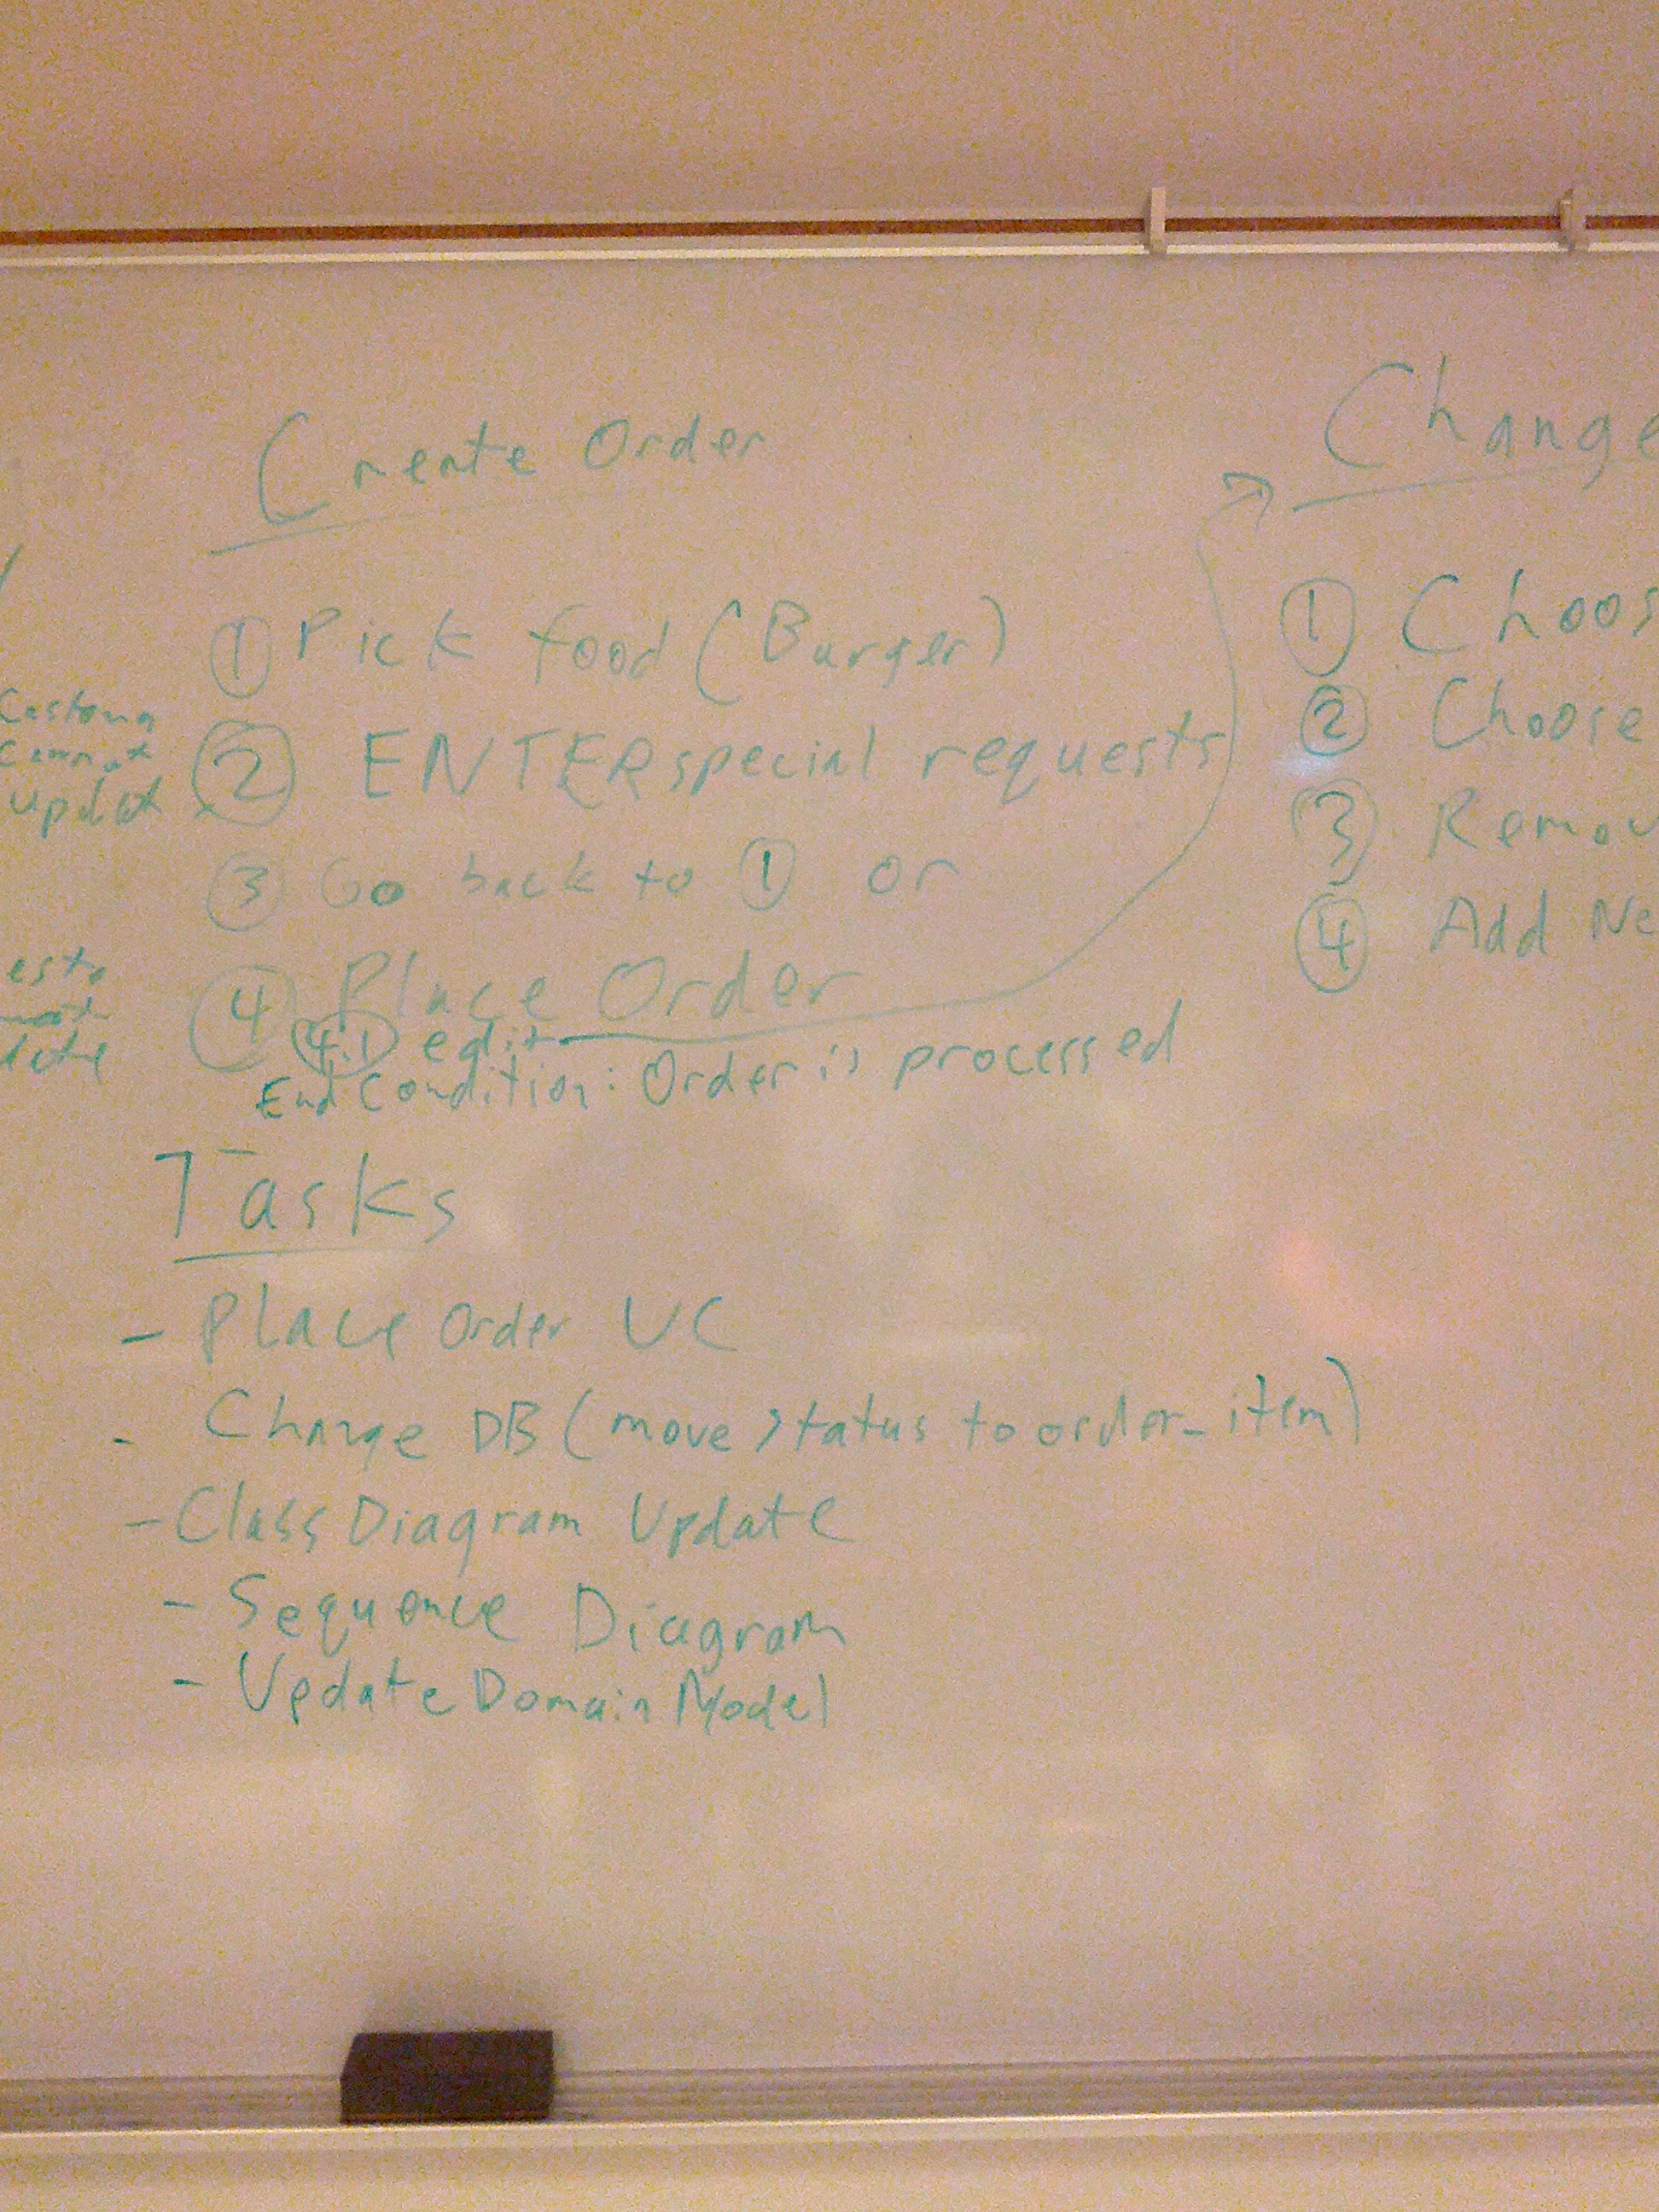 Create Order
① Pick food (Burger)
② ENTER special requests
③ Go back to ① or
④ Place Order
4.1 edit
End Condition: Order is processed
Tasks
- Place Order UC
- Change DB (move status to order_item)
- Class Diagram Update
- Sequence Diagram
- Update Domain Model
Change
① Choos
② Choose
③ Remov
④ Add Ne